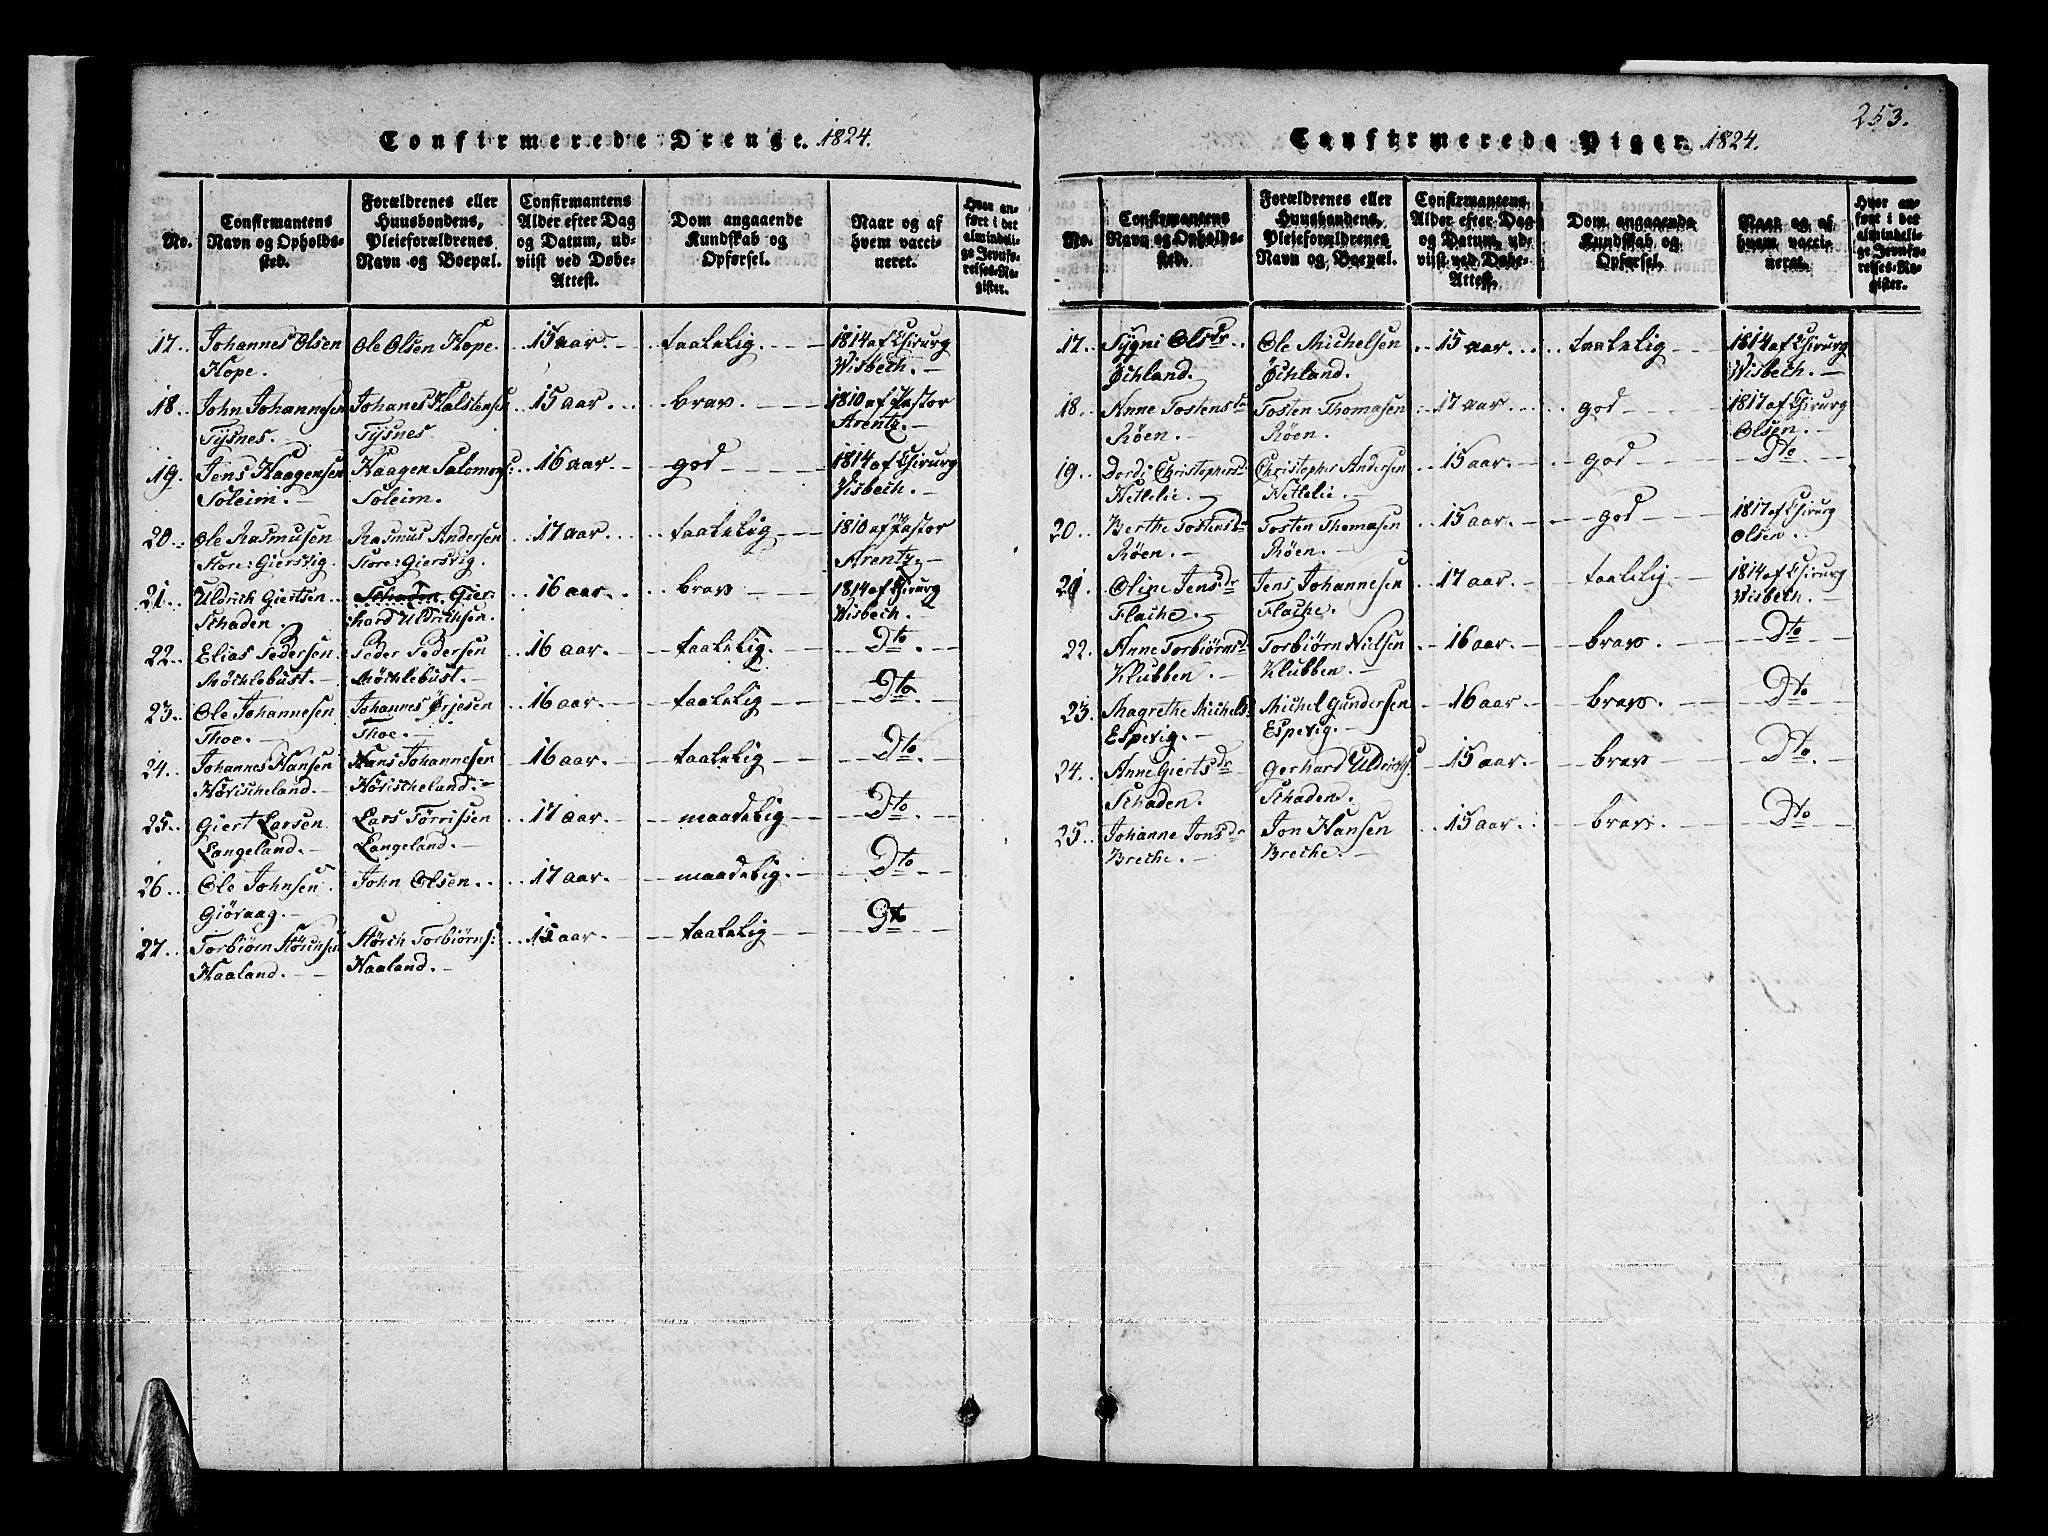 253.
Confirmerede Drenge. 1824.
No.
Confirmantens Navn og Opholdssted.
Forældrenes eller Huusbondens, Pleieforældrenes Navn og Boepæl.
Confirmantens Alder efter Dag og Datum, udviist ved Døbe-Attest.
Dom angaaende Kundskab og Opførsel.
Naar og af hvem vaccineret.
Hvor anført i det almindelige Jevnførelses-Register.
17. Johannes Olsen Ole Olsen Hope. 15 aar taalelig 1814 af Chirurg
Hope. Wisbech.
18 John Johannesen Johanes Halstensen 15 aar brav 1810 af Pastor
Tysnes. Tysnes. Arentz.
19. Jens Haagensen Haagen Salomons: 16 aar god 1814 af Chirurg
Soleim. Soleim. Wisbech.
20 Ole Rasmusen Rasmus Andersen 17 aar taalelig 1810 af Pastor
Store: Giersvig. Store: Giersvig. Arentz
21. Uldrich Giertsen Gier- 16 aar brav 1814 af Chirurg
Schaden. hard Uldrichsen. Wisbech.
22. Elias Pedersen Peder Pedersen 16 aar taalelig. Dto
Møchlebust. Møchlebust.
23. Ole Johannesen Johannes Ørjesen 16 aar taalelig Dto
Thoe. Thoe.
24. Johannes Hansen Hans Johannesen 16 aar. taalelig Dto
Hövischeland. Hövischeland.
25. Giert Larsen Lars Törrissen 17 aar maadelig Dto
Langeland. Langeland.
26. Ole Johnsen John Olsen. 17 aar maadelig. Dto
Giöraag.
27. Torbiörn Störchsen Störch Torbiörns: 15 aar taalelig Dto
Haaland. Haaland.
Confirmerede Piger. 1824.
No.
Confirmantens Navn og Opholdssted.
Forældrenes eller Huusbondens, Pleieforældrenes Navn og Boepæl.
Confirmantens Alder efter Dag og Datum, udviist ved Døbe-Attest.
Dom angaaende Kundskab og Opførsel.
Naar og af hvem vaccineret.
Hvor anført i det almindelige Jevnførelses-Register.
17. Sygni Olsdr. Ole Michelsen 15 aar taalelig 1814 af Chirurg
Øchland. Øchland. Wisbech.
18. Anne Tostensdr Tosten Thomasen 17 aar god 1817 af Chirurg
Röen. Röen. Olsen.
19. Dordi Christophersd Christopher Andersen 15 aar. god Dto
Hettelie. Hettelie.
20. Berthe Tostensdr Tosten Thomasen 15 aar god 1817 af Chirurg
Röen. Röen. Olsen.
21. Oline Jensdr Jens Johannesen 17 aar taalelig 1814 af Chirurg
Flache. Flache. Wisbech.
22. Anne Torbiörnsd Torbiörn Nielsen 16 aar. brav. Dto
Klubben. Klubben.
23. Magrethe Michels: Michel Gundersen 16 aar brav. Dto
Espevig. Espevig.
24. Anne Giertsdr Gerhard Uldrichs: 15 aar. brav Dto
Schaden. Schaden.
25. Johanne Jonsdr Jon Hansen 15 aar brav. Dto
Breche. Breche.